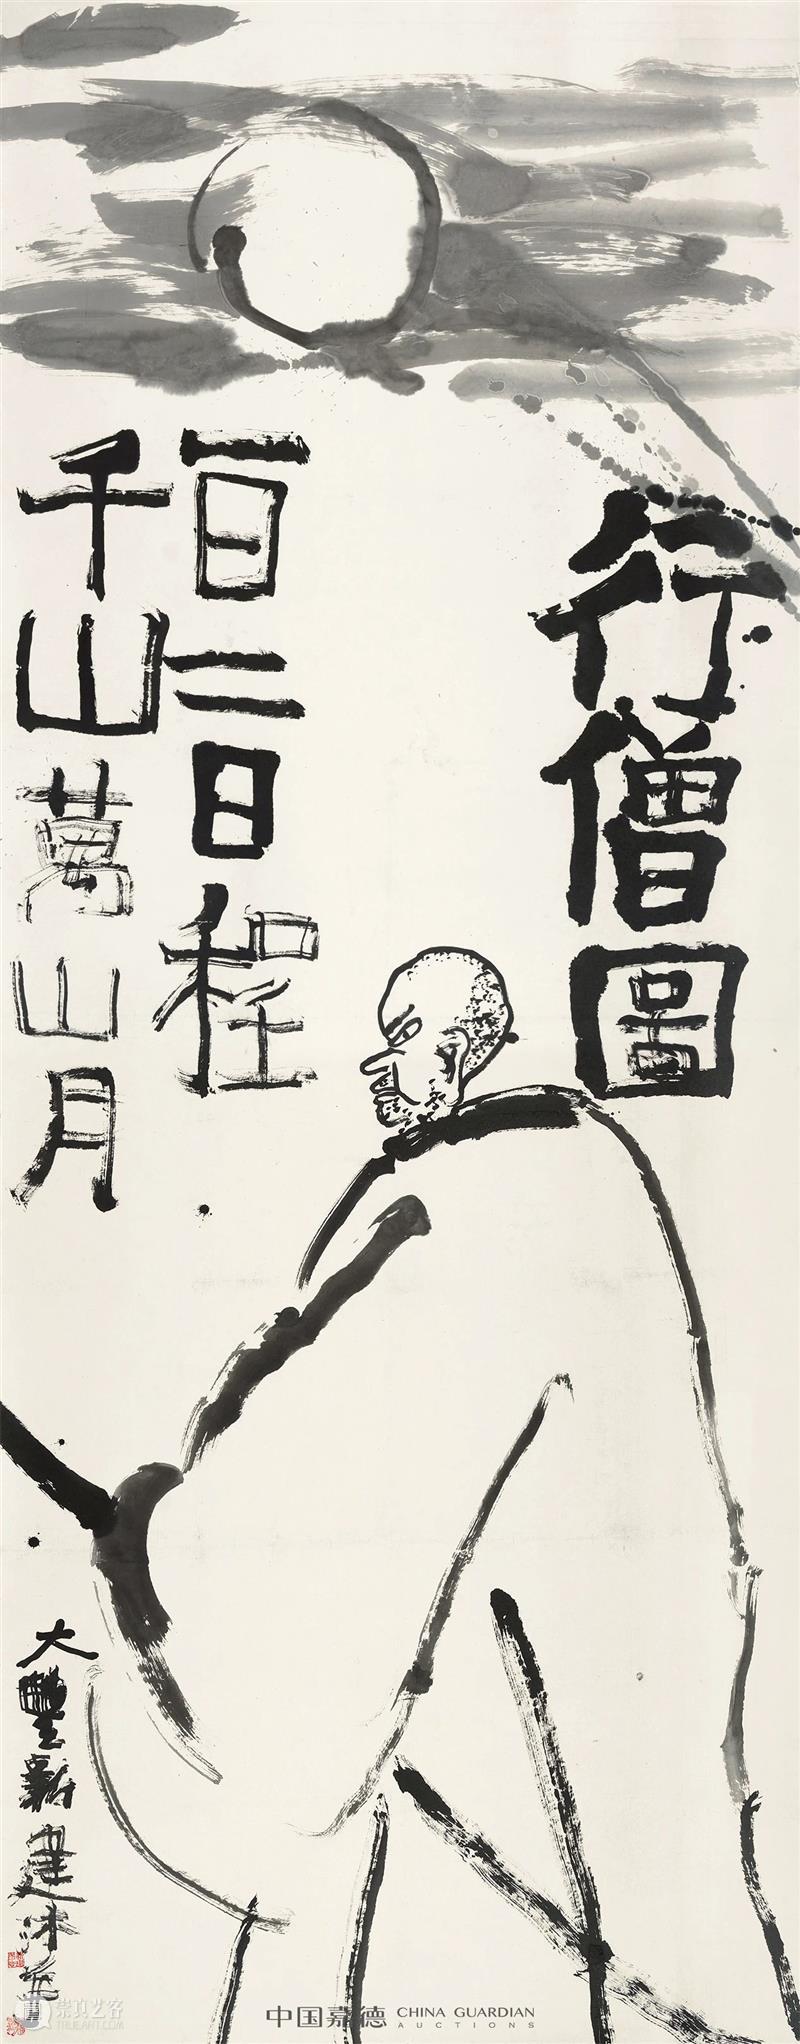 行僧圖
一日二日程
千山萬山月
大豐新建
中国嘉德 CHINA GUARDIAN
AUCTIONS
崇真艺客
TRUEART.COM